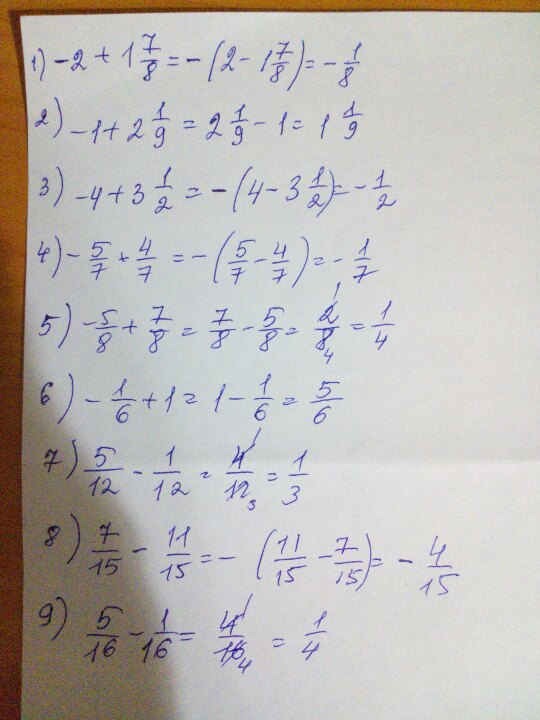 1) -2 + 1 7/8 = -(2 - 1 7/8) = - 1/8
2) -1 + 2 1/9 = 2 1/9 - 1 = 1 1/9
3) -4 + 3 1/2 = -(4 - 3 1/2) = - 1/2
4) - 5/7 + 4/7 = -(5/7 - 4/7) = - 1/7
5) -5/8 + 7/8 = 7/8 - 5/8 = 2 1/8 4 = 1/4
6) - 1/6 + 1 = 1 - 1/6 = 5/6
7) 5/12 - 1/12 = 4 1/12 3 = 1/3
8) 7/15 - 11/15 = - (11/15 - 7/15) = - 4/15
9) 5/16 - 1/16 = 4 1/16 4 = 1/4